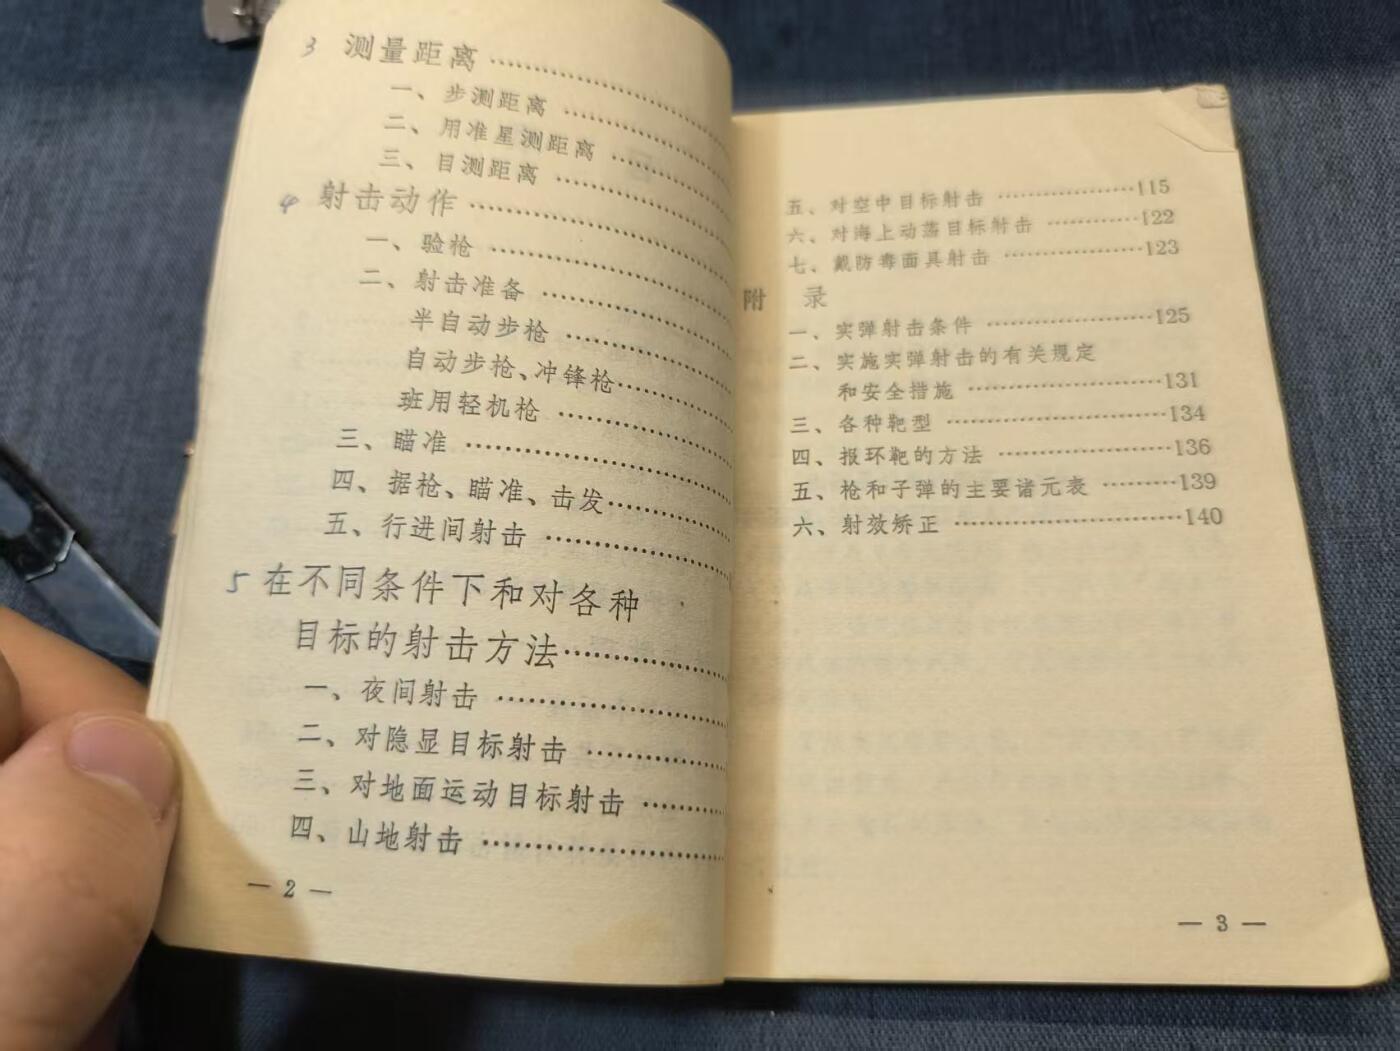 3 测量距离 ……………
一、步测距离 ……………
二、用准星测距离 ……………
三、目测距离 ……………
4 射击动作 ……………
一、验枪 ……………
二、射击准备 ……………
半自动步枪 ……………
自动步枪、冲锋枪……………
班用轻机枪 ……………
三、瞄准 ……………
四、据枪、瞄准、击发……………
五、行进间射击 ……………
5 在不同条件下和对各种
目标的射击方法……………
一、夜间射击 ……………
二、对隐显目标射击 ……………
三、对地面运动目标射击 ……………
四、山地射击 ……………
— 2 —
五、对空中目标射击 ……………115
六、对海上动荡目标射击 ……………122
七、戴防毒面具射击 ……………123
附 录
一、实弹射击条件 ……………125
二、实施实弹射击的有关规定
和安全措施 ……………131
三、各种靶型 ……………134
四、报环靶的方法 ……………136
五、枪和子弹的主要诸元表 ……………139
六、射效矫正 ……………140
— 3 —